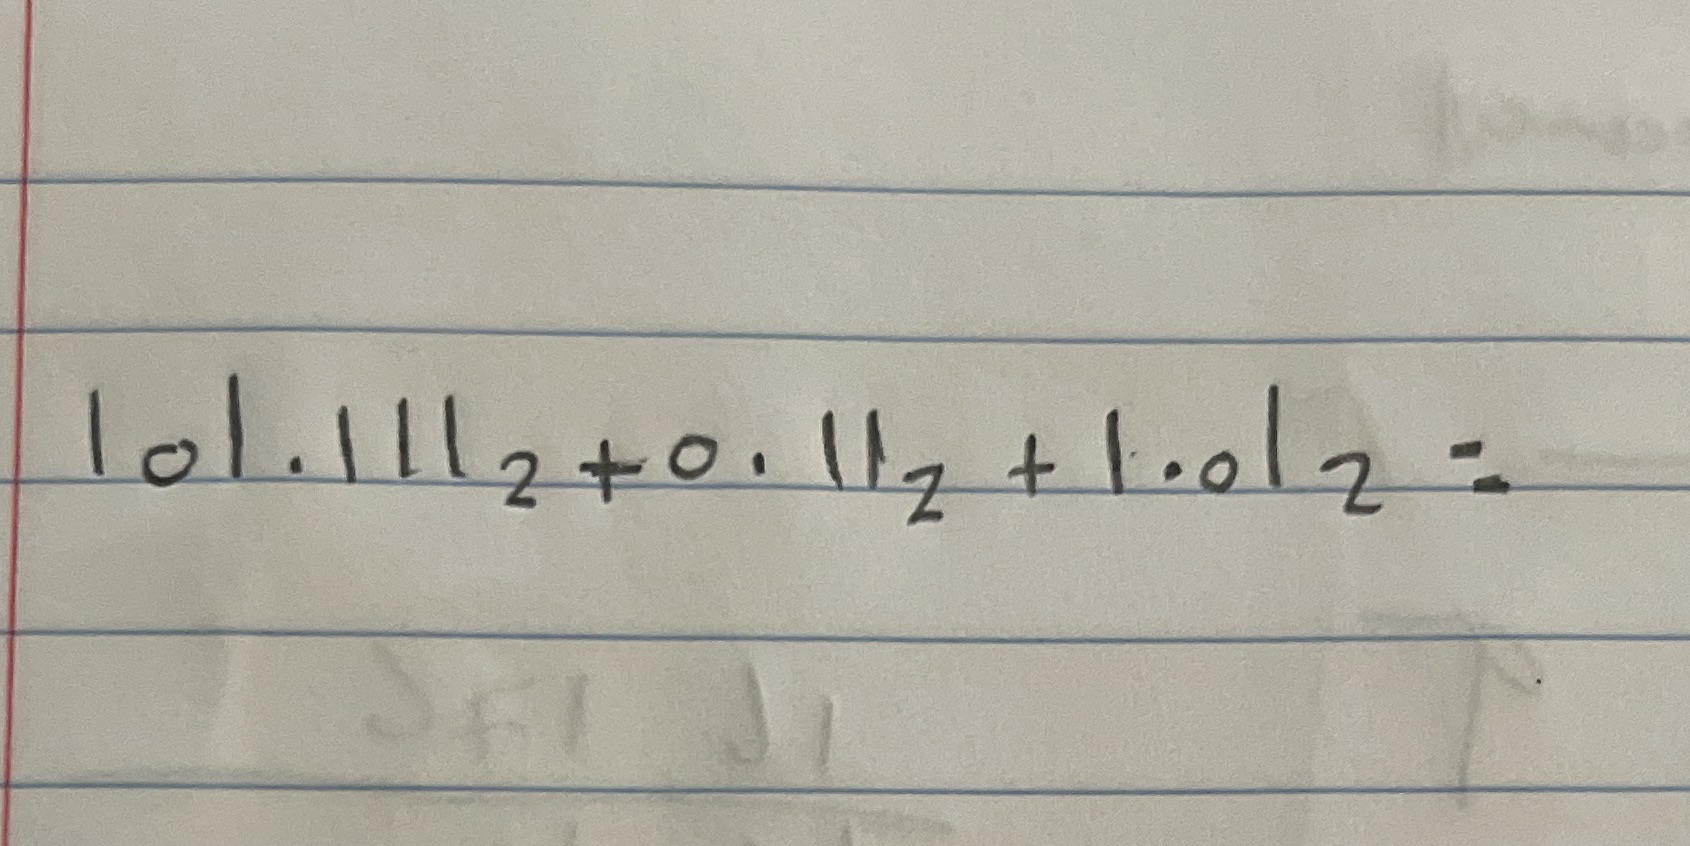 101.111₂ + 0.11₂ + 1.01₂ =